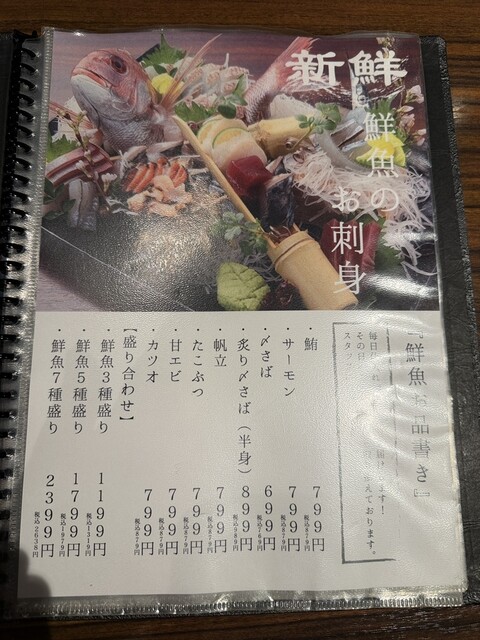 新鮮
鮮魚の
お刺身
『鮮魚お品書き』
毎日
その日
スタ
届けします!
えております。
・鮪 799円
税込879円
・サーモン 799円
税込879円
・〆さば 699円
税込769円
・炙り〆さば(半身) 899円
税込989円
・帆立 799円
税込879円
・たこぶつ 799円
税込879円
・甘エビ 799円
税込879円
・カツオ 799円
税込879円
【盛り合わせ】
・鮮魚3種盛り 1199円
税込1319円
・鮮魚5種盛り 1799円
税込1979円
・鮮魚7種盛り 2399円
税込2638円